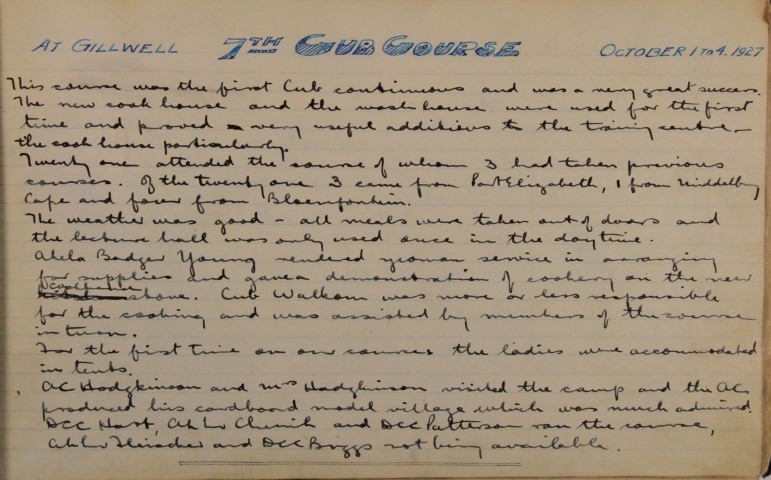 AT GILLWELL 7TH CUB COURSE OCTOBER 1 TO 4. 1927
This course was the first Cub continuous and was a very great success.
The new cook house and the wash house were used for the first
time and proved very useful additions to the training centre –
the cook house particularly.
Twenty one attended the course of whom 3 had taken previous
courses. Of the twenty one 3 came from Port Elizabeth, 1 from Middelburg
Cape and four from Bloemfontein.
The weather was good – all meals were taken out of doors and
the lecture hall was only used once in the daytime.
Akela Badger Young rendered yeoman service in arranging
for supplies and gave a demonstration of cookery on the new
stove. Cub Walkom was more or less responsible
for the cooking and was assisted by members of the course
in turn.
For the first time on our courses the ladies were accommodated
in tents.
AC Hodgkinson and Mrs Hodgkinson visited the camp and the AC
produced his cardboard model village which was much admired.
DCC Hart, and DCC Patterson ran the course,
Fleischer and DCC Briggs not being available.